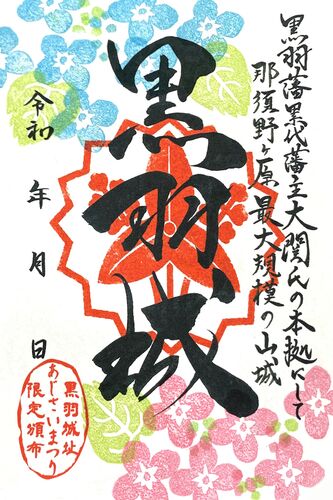 黒羽藩累代藩主大関氏の本拠にして
那須野ヶ原最大規模の山城
黒羽城
令和 年 月 日
黒羽城址
あじさいまつり
限定頒布